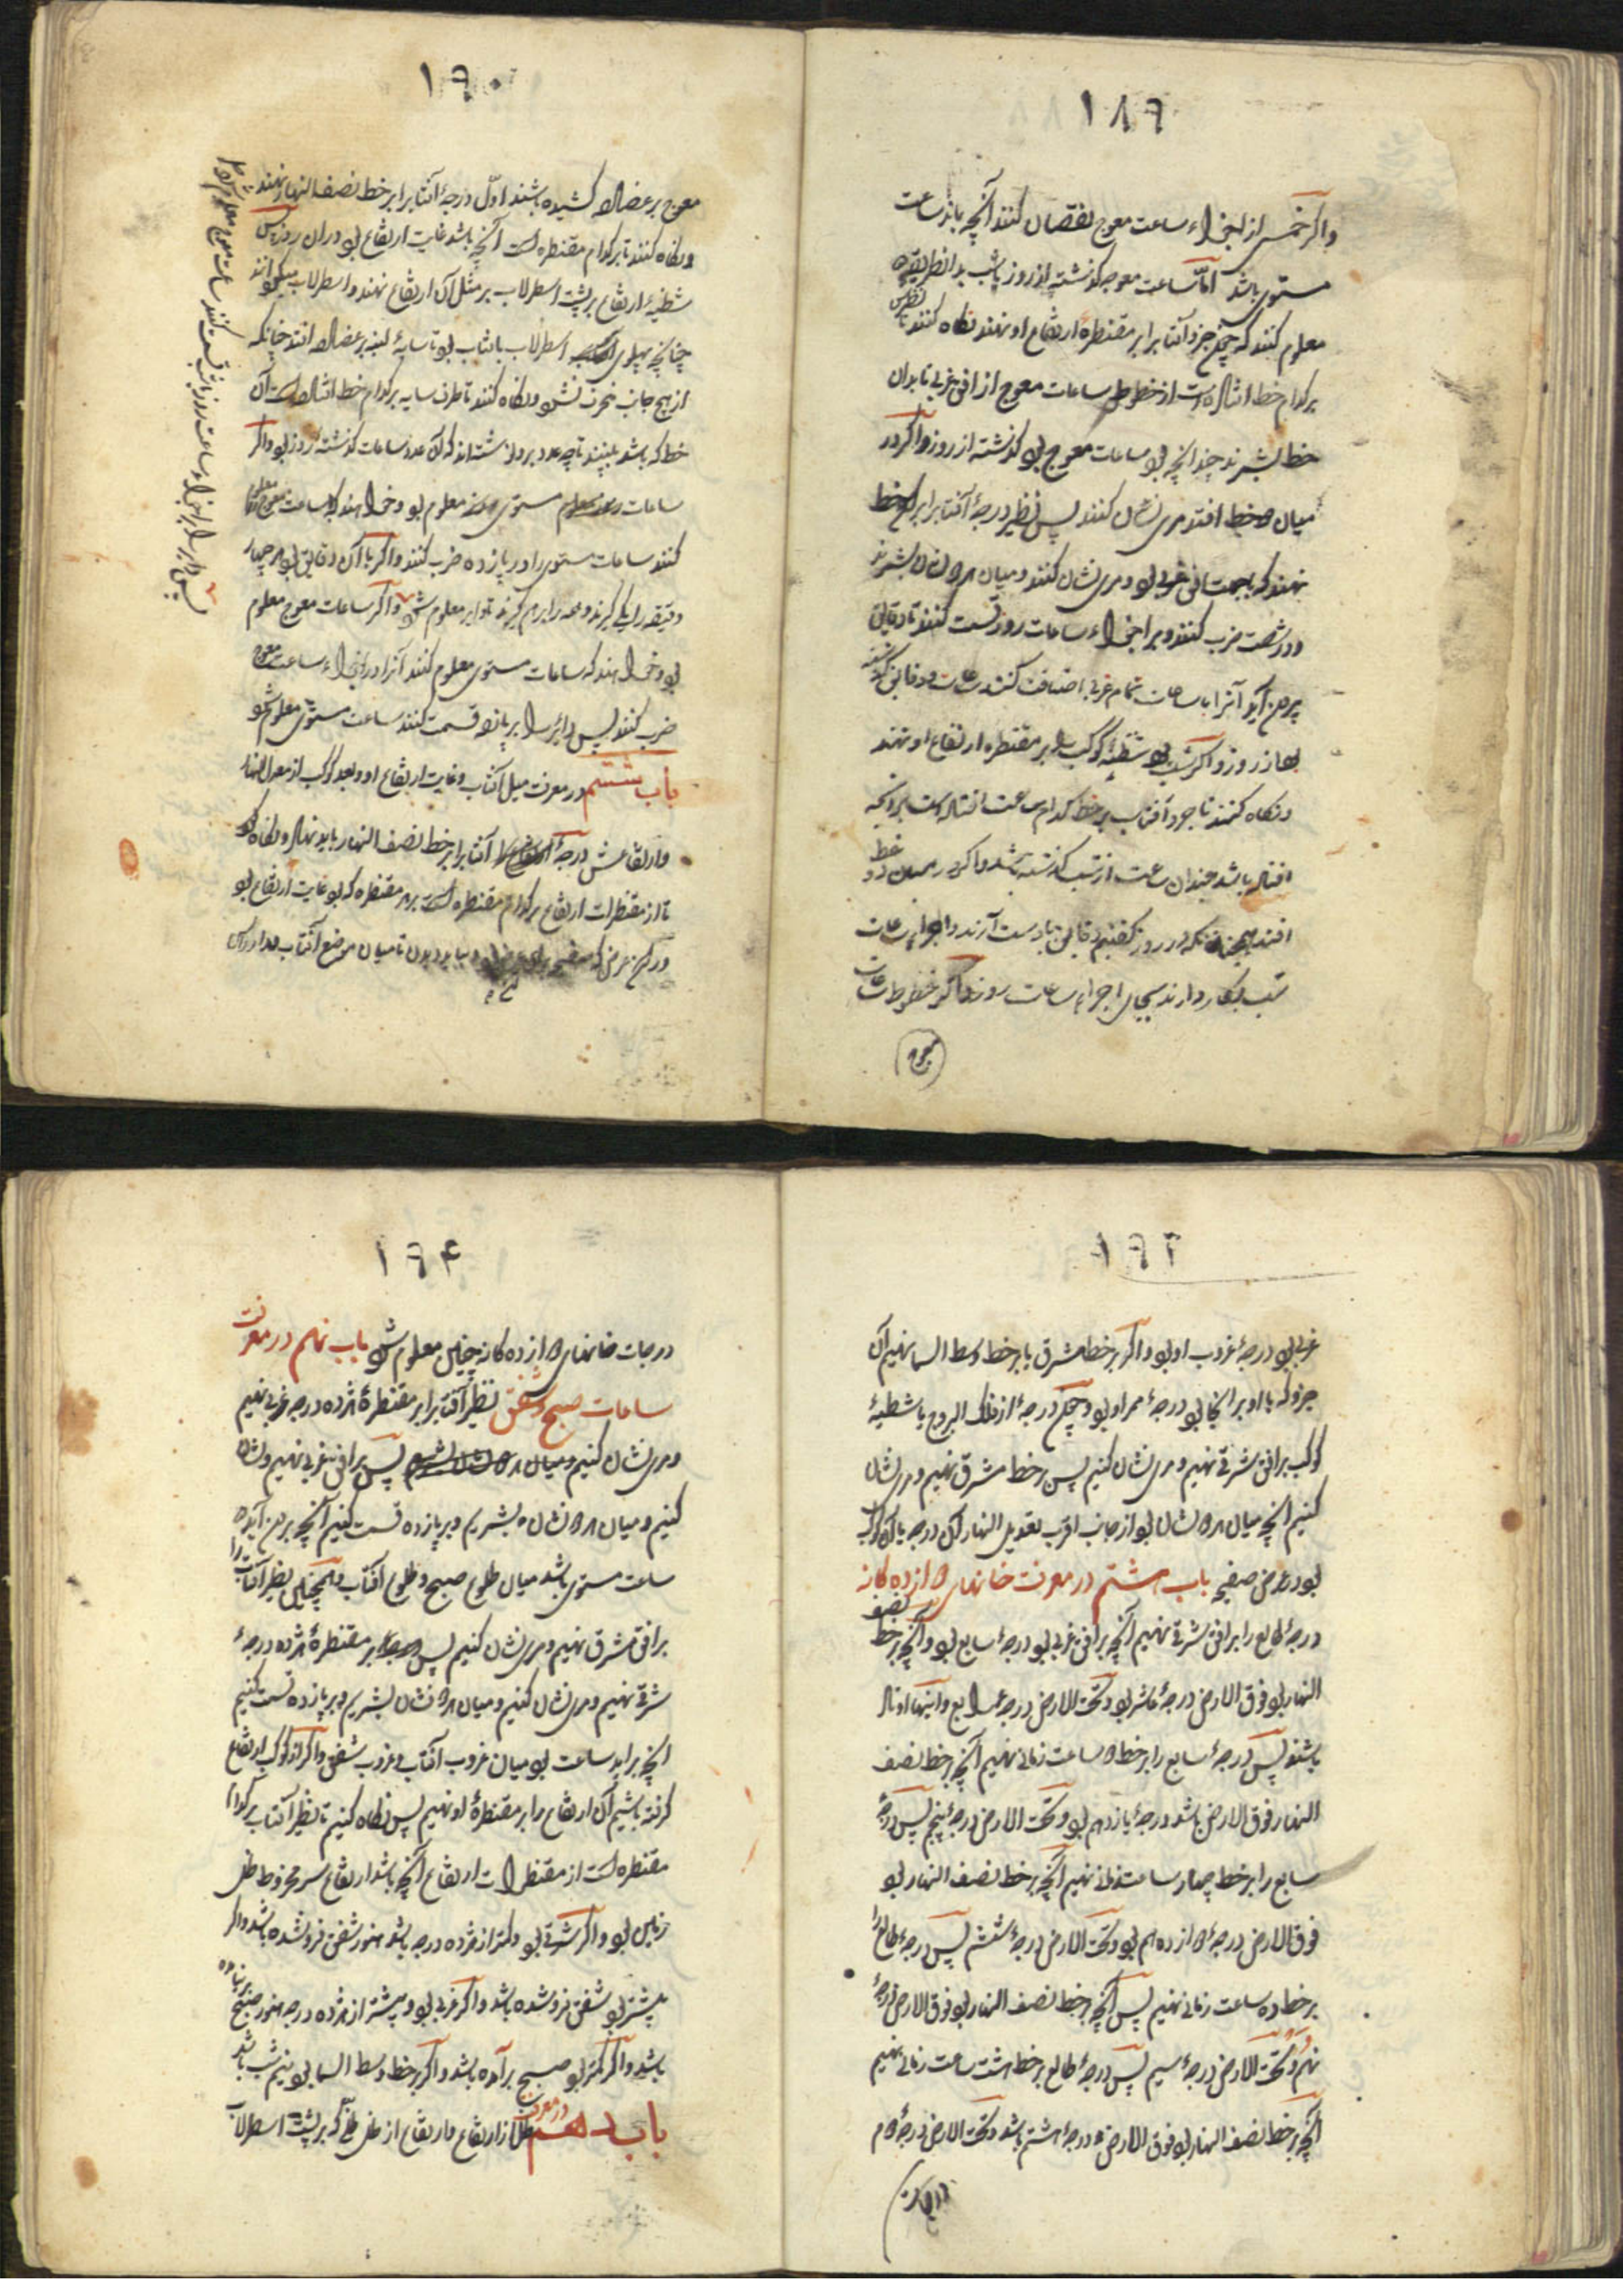 ١٨٩
واگر خمس از اجزاء ساعت معوج نقصان کنند آنچه باند ساعت
مستوی باشد اما ساعت معوجه گذشته از روز یا شب بدانطریق
معلوم کنند که چون جزو آفتاب را بر مقنطرهٔ ارتفاع او نهند نگاه کنند تا نظیرش
بر کدام خط افتاده است از خطوط ساعات معوج از افق غربی تا بدان
خط بشمرند چندانچه بود ساعات معوج بود گذشته از روز واگر در
میان دو خط افتد مری نشان کنند پس نظیر درجهٔ آفتاب را بر خط
نهند که بجهت افق غربی بود و مری نشان کنند و میان هر دو نشان بشمرند
و در شصت ضرب کنند و بر اجزاء ساعات روز قسمت کنند تا دقایق
بیرون آید آنرا با ساعات تمام غربی اضافت کنند ساعات و دقایق گذشته
بود از روز واگر شب بود شظیهٔ کوکب را بر مقنطره ارتفاع او نهند
و نگاه کنند تا جزو آفتاب بر خط کدام ساعت افتاده است بر آنچه
افتاده باشد چندان ساعت از شب گذشته باشد واگر در میان دو خط
افتد همچنانکه در روز گفتیم دقایق بادست آرند و اجزاء ساعات
شب بکار دارند بجای اجزاء ساعات روز واگر خطوط ساعات
معوج
١٩٠
معوج بر عضاده کشیده باشند اول درجهٔ آفتاب را بر خط نصف النهار نهند
و نگاه کنند تا بر کدام مقنطره است آنچه باشد غایت ارتفاع بود در آن روز پس
شظیهٔ ارتفاع بر پشت اسطرلاب بر مثل آن ارتفاع نهند و اسطرلاب میگردانند
چنانچه پهلوی اسطرلاب با آفتاب بود تا سایهٔ لبنه بر عضاده افتد چنانکه
از هیچ جانب منحرف نشود و نگاه کنند تا طرف سایه بر کدام خط افتاده است آن
خط که باشد ببینند تا چه عدد برو نوشته اند که آن عدد ساعات گذشته از روز بود واگر
ساعات مستوی معلوم بود و خواهند که ساعت معوج معلوم
کنند ساعات مستوی را در پازده ضرب کنند واگر با آن دقایق بود هر چهار
دقیقه را یکی گیرند و همه را بر هم گیرند تا دایر معلوم شود واگر ساعات معوج معلوم
بود و خواهند که ساعات مستوی معلوم کنند آنرا در اجزاء ساعت معوج
ضرب کنند پس دایر را بر پانزده قسمت کنند ساعت مستوی معلوم شود
باب ششم در معرفت میل آفتاب و غایت ارتفاع او و بعد کوکب از معدل النهار
و ارتفاعش درجهٔ آفتاب را بر خط نصف النهار باید نهاد و نگاه کرد
تا از مقنطرات ارتفاع بر کدام مقنطره است بر هر مقنطره که بود غایت ارتفاع بود
پس دایر را بر اجزاء ساعت روز یا شب قسمت کنند ساعت معوج معلوم شود
١٩٣
غربی بود درجهٔ غروب او بود واگر بر خط مشرق یا بر خط وسط السما نهیم آن
جزو که با او بر آنجا بود درجهٔ ممر او بود و چون درجهٔ از فلک البروج یا شظیهٔ
کوکب بر افق شرقی نهیم و مری نشان کنیم پس بر خط مشرق نهیم و مری نشان
کنیم آنچه میان هر دو نشان بود از جانب اقرب تعدیل النهار آن درجه یا آن کوکب
بود در عرض صفیحه باب هشتم در معرفت خانهای دوازده گانه
درجهٔ طالع را بر افق شرقی نهیم آنچه بر افق غربی بود درجهٔ سابع بود و آنچه بر خط نصف
النهار بود فوق الارض درجهٔ عاشر بود و تحت الارض درجهٔ رابع و اینها اوتاد
باشند پس درجهٔ سابع را بر خط دو ساعت زمانی نهیم آنچه بر خط نصف
النهار فوق الارض باشد درجهٔ یازدهم بود و تحت الارض درجهٔ پنجم پس درجهٔ
سابع را بر خط چهار ساعت زمانی نهیم آنچه بر خط نصف النهار بود
فوق الارض درجهٔ دوازدهم بود و تحت الارض درجهٔ ششم پس درجهٔ طالع را
بر خط ده ساعت زمانی نهیم پس آنچه بر خط نصف النهار بود فوق الارض درجهٔ
نهم و تحت الارض درجهٔ سیم پس درجهٔ طالع بر خط هشت ساعت زمانی نهیم
آنچه بر خط نصف النهار بود فوق الارض درجهٔ هشتم باشد و تحت الارض درجهٔ دوم
١٩۴
درجات خانهای دوازده گانه چنین معلوم شود باب نهم در معرفت
ساعات صبح و شفق نظیر آفتاب را بر مقنطرهٔ هژده درجه غربی نهیم
و مری نشان کنیم پس بر افق غربی نهیم و نشان
کنیم و میان هر دو نشان بشمریم و بر پازده قسمت کنیم آنچه برون آید
ساعت مستوی باشد میان طلوع صبح و طلوع آفتاب و همچنین نظیر آفتاب را
بر افق مشرق نهیم و مری نشان کنیم پس بر مقنطرهٔ هژده درجهٔ
شرقی نهیم و مری نشان کنیم و میان هر دو نشان بشمریم و بر پازده قسمت کنیم
آنچه براید ساعت بود میان غروب آفتاب و غروب شفق واگر از کوکب ارتفاع
گرفته باشیم آن ارتفاع را بر مقنطرهٔ او نهیم پس نگاه کنیم تا نظیر آفتاب بر کدام
مقنطره است از مقنطرات ارتفاع آنچه باشد ارتفاع سر مخروط ظل
زمین بود واگر شرقی بود و کمتر از هژده درجه باشد هنوز شفق فرونشده باشد واگر
بیشتر بود شفق فروشده باشد واگر غربی بود و بیشتر از هژده درجه هنوز صبح بر نیامده
باشد واگر کمتر بود صبح برآمده باشد واگر بر خط وسط السما بود نیم شب باشد
باب دهم در معرفت ظل از ارتفاع و ارتفاع از ظل ظلی که بر پشت اسطرلاب